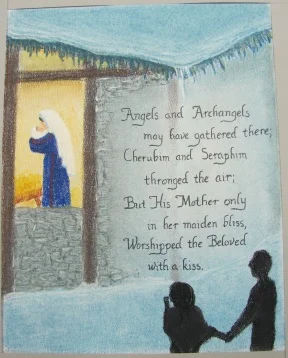 Angels and Archangels
may have gathered there,
Cherubim and Seraphim
thronged the air;
But His Mother only
in her maiden bliss,
Worshipped the Beloved
with a kiss.